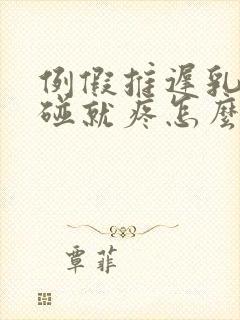 例假推遲乳
碰就疼怎麼
覃菲